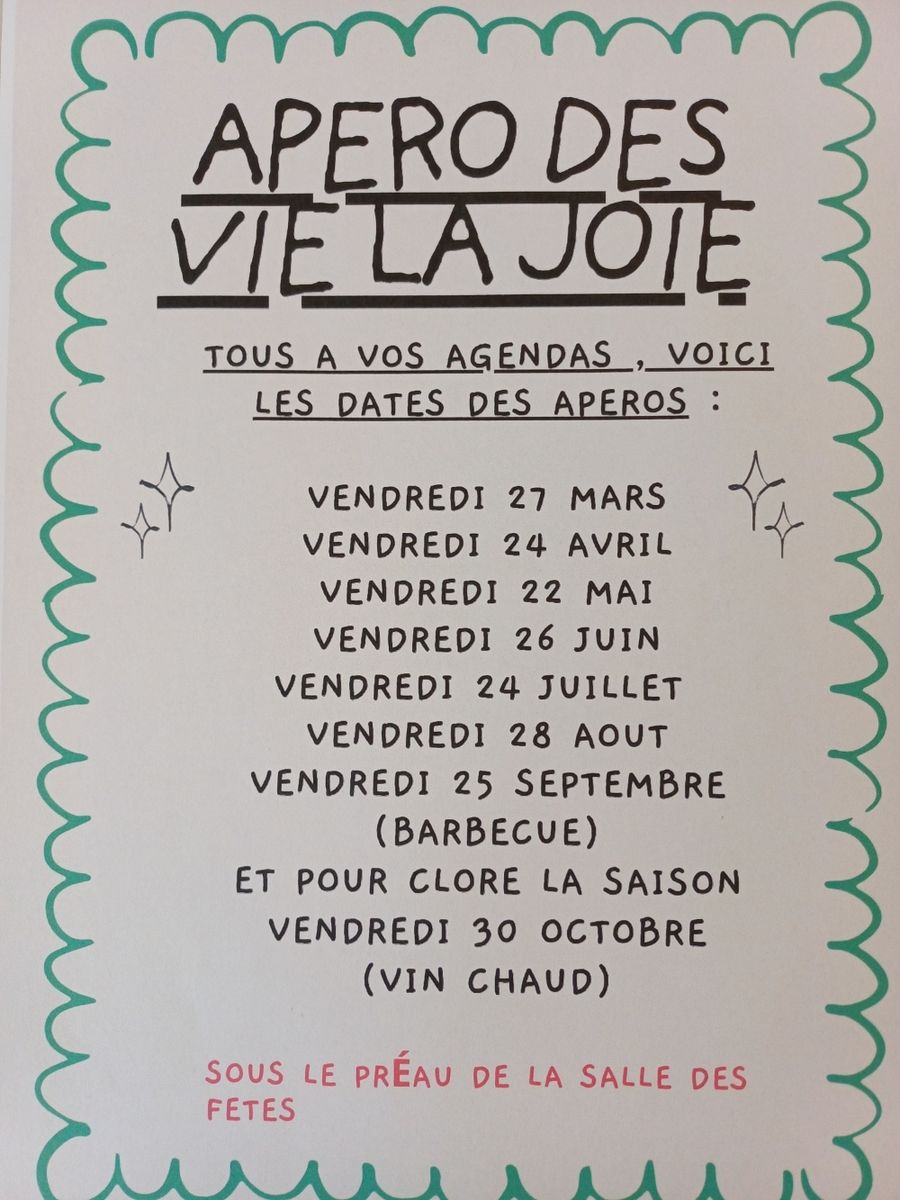 APERO DES
VIE LA JOIE
TOUS A VOS AGENDAS , VOICI
LES DATES DES APEROS :
VENDREDI 27 MARS
VENDREDI 24 AVRIL
VENDREDI 22 MAI
VENDREDI 26 JUIN
VENDREDI 24 JUILLET
VENDREDI 28 AOUT
VENDREDI 25 SEPTEMBRE
(BARBECUE)
ET POUR CLORE LA SAISON
VENDREDI 30 OCTOBRE
(VIN CHAUD)
SOUS LE PRÉAU DE LA SALLE DES
FETES